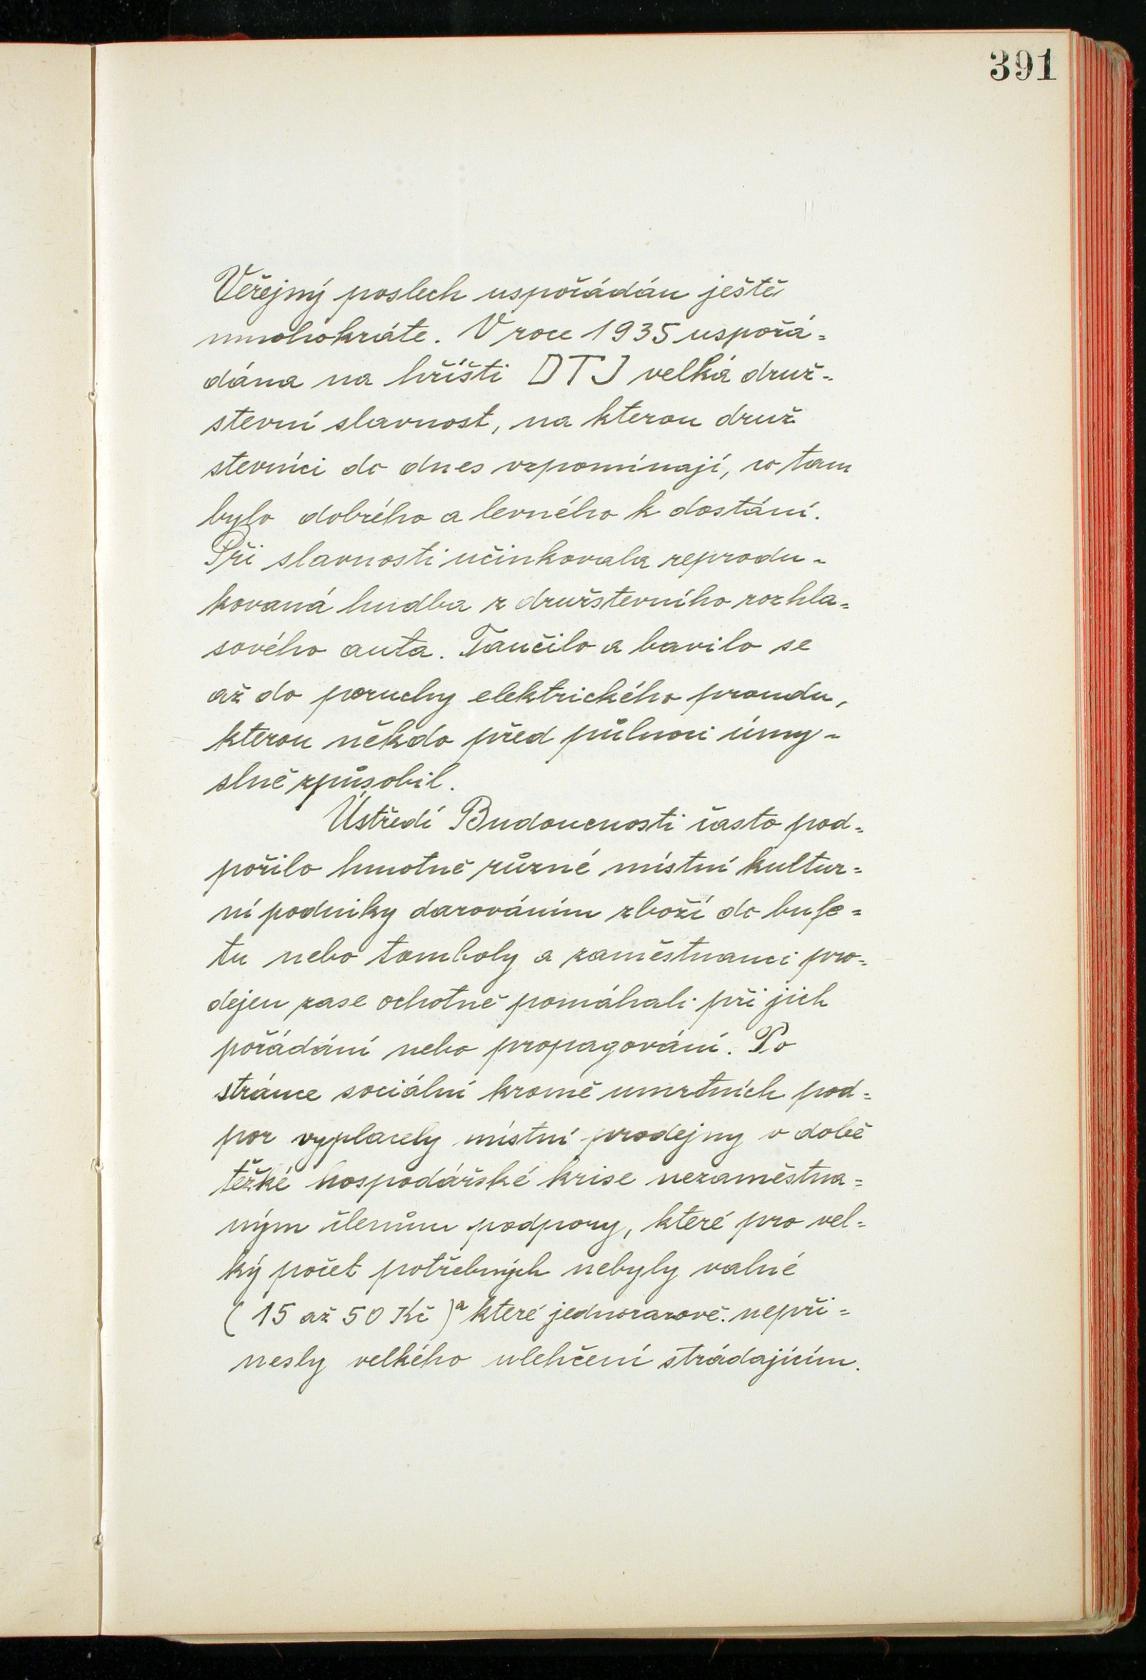 391
Veřejný poslech uspořádán ještě
mnohokráte. V roce 1935 uspořá-
dána na hřišti DTJ velká druž-
stevní slavnost, na kterou druž
stevníci do dnes vzpomínají, co tam
bylo dobrého a levného k dostání.
Při slavnosti učinkovala reprodu-
kovaná hudba z družstevního rozhla-
sového auta. Tančilo a bavilo se
až do poruchy elektrického proudu,
kterou někdo před půlnoci úmy-
slně způsobil.
Ústředí Budoucnosti často pod-
pořilo hmotně různé místní kultur-
ní podniky darováním zboží do bufe-
tu nebo tomboly a zaměstnanci pro-
dejen zase ochotně pomáhali při jich
pořádání nebo propagování. Po
stránce sociální kromě umrtních pod-
por vyplacely místní prodejny v době
těžké hospodářské krise nezaměstna-
ným členům podpory, které pro vel-
ký počet potřebných nebyly valné
(15 až 50 Kč) a které jednorázově nepři-
nesly velkého ulehčení strádajícím.